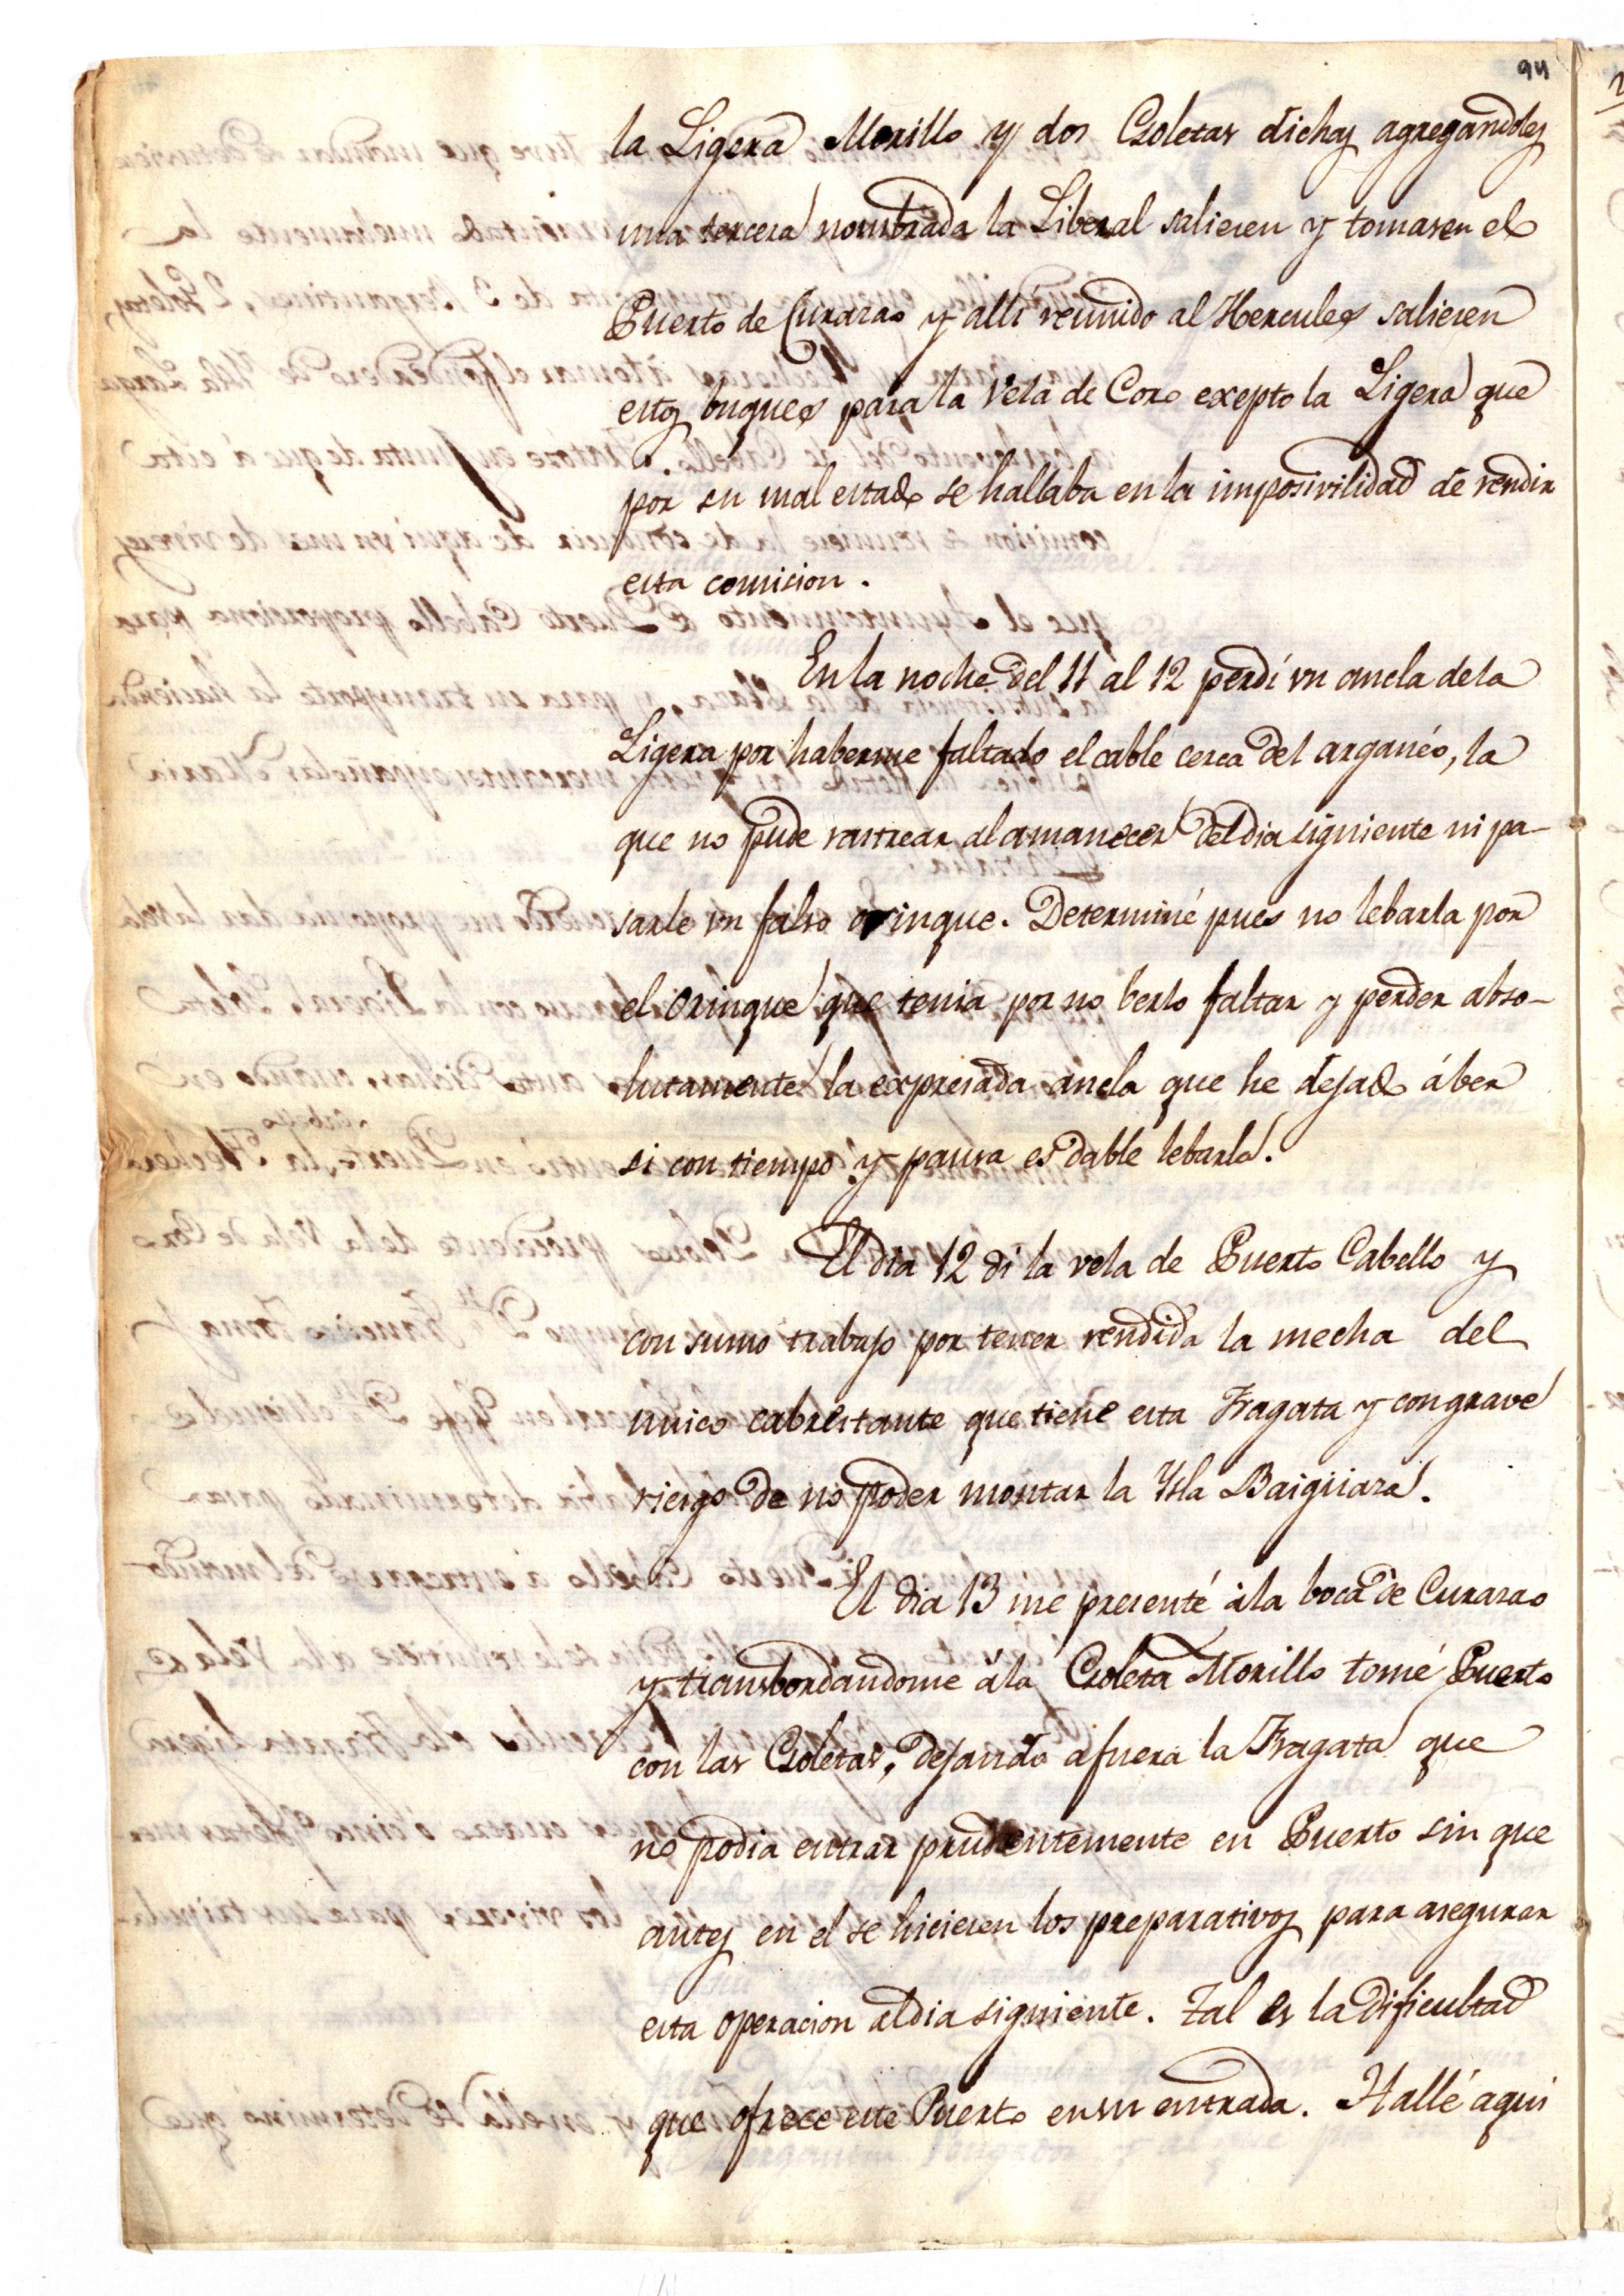 94
la Ligera Morillo y dos Goletas dichas agregandoles
una tercera nombrada la Liberal saliesen y tomasen el
Puerto de Curazao y alli reunido al Hercules saliesen
estos buques para la Vela de Coro exepto la Ligera que
por su mal estado se hallaba en la imposivilidad de rendir
esta comision.
En la noche del 11 al 12 perdí un ancla de la
Ligera por haberme faltado el cable cerca del arganéo, la
que no pude rastrear al amanecer del dia siguiente ni pa-
sarle un falso orinque. Determiné pues no lebarla por
el orinque que tenia por no berlo faltar y perder abso-
lutamente la expresada ancla que he dejado á ber
si con tiempo y pausa es dable lebarla.
El dia 12 di la vela de Puerto Cabello y
con sumo trabajo por tener rendida la mecha del
unico cabrestante que tiene esta Fragata y con grave
riesgo de no poder montar la Ysla Baiguiara.
El dia 13 me presenté á la boca de Curasao
y transbordandome á la Goleta Morillo tomé Puerto
con las Goletas, dejando afuera la Fragata que
no podia entrar prudentemente en Puerto sin que
antes en el se hiciesen los preparativos para asegurar
esta operacion al dia siguiente. Tal es la dificultad
que ofrece este Puerto en su entrada. Hallé aqui